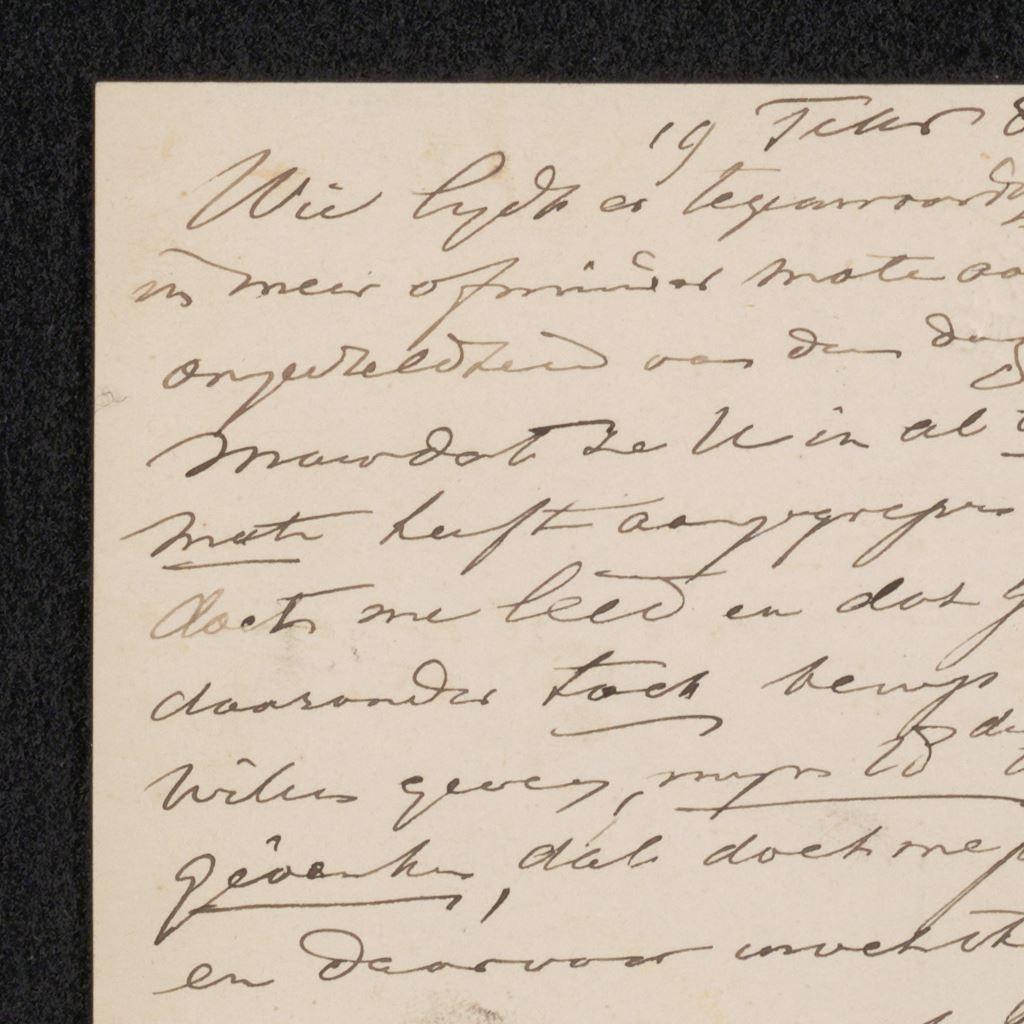 19 Febr 8
Wie lydt er tegenwoordig
in meer of minder mate aa
ongesteldheid van den dag
Maar dat ze U in al
mate heeft aangegrepen
doet me leed en dat G
daaronder toch bewijs
willen geven, myns
gedenken, dat doet me
en daarvoor